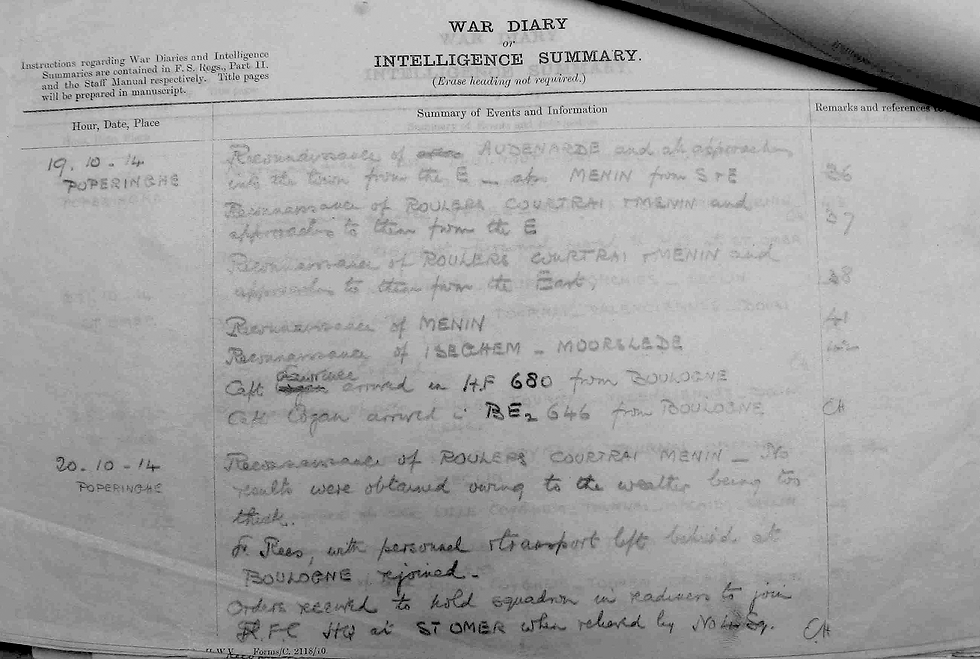 WAR DIARY
or
INTELLIGENCE SUMMARY.
(Erase heading not required.)
Instructions regarding War Diaries and Intelligence
Summaries are contained in F. S. Regs., Part II.
and the Staff Manual respectively. Title pages
will be prepared in manuscript.
Hour, Date, Place
Summary of Events and Information
Remarks and references to
19.10-14
POPERINGHE
Reconnaissance of AUDENARDE and all approaches
into the town from the E – also MENIN from S + E
36
Reconnaissance of ROULERS COURTRAI + MENIN and
approaches to them from the E
37
Reconnaissance of ROULERS COURTRAI + MENIN and
approaches to them from the East
38
Reconnaissance of MENIN
41
Reconnaissance of ISEGHEM – MOORSLEDE
Capt Lawrence arrived in H.F 680 from BOULOGNE
Capt Cogan arrived in BE2 646 from BOULOGNE
CH
20.10-14
POPERINGHE
Reconnaissance of ROULERS COURTRAI MENIN – No
results were obtained owing to the weather being too
thick.
Rees, with personnel + transport left behind at
BOULOGNE rejoined –
Orders received to hold squadron in readiness to join
R.F.C HQ at ST OMER when relieved by No Sq.
CH
Forms/C. 2118/10.